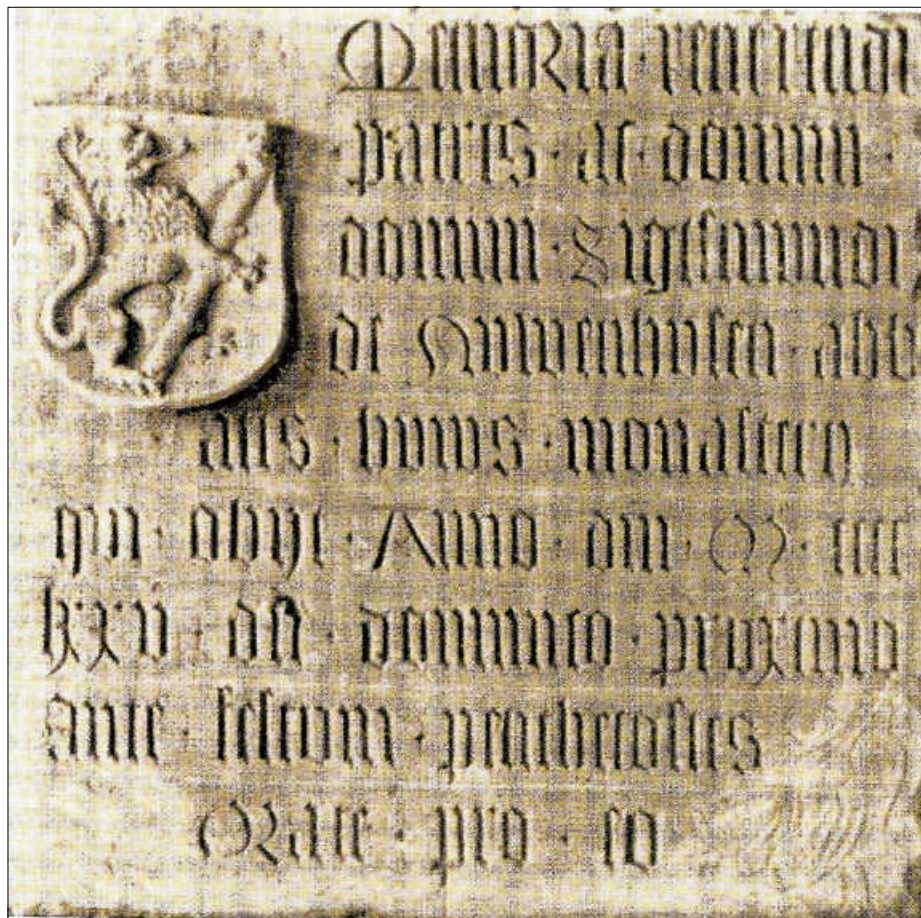 Memoria · reverendi
patris · ac · domini ·
domini · Sigismundi
de Nuwenhusen · abb
atis · huius · monasterij
qui · obijt · Anno · dni · M · cccc
lxxv · die · dominico · proximo
Ante · festum · penthecostes
Orate · pro · eo